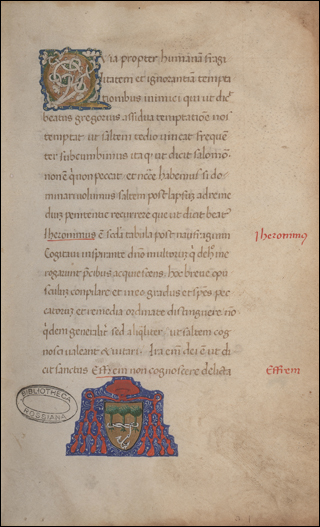 Quia propter humanã fragi
litatem et ignorantiam tempta
tionibus inimici qui ut dic̃
beatus gregorius assidua temptatione nos
temptat ut saltem tedio vincat frequẽ
ter subcumbimus ita q ut dicit salomon
non ẽ qͥ non peccet et
saltem post lapsum ad reme
dium penitentie recurrere que ut dicit beat
Iheronimus ẽ secũda tabula post naufragium
Iheronimus
Cogitavi instante dnõ multorum
rogantiũ precibus acquiescens hoc breve opu
sculum compilare et in eo gradus et spẽs pec
catorum et remedia ordinate distinguere nõ
qͥdem generalr̃ sed aliqliter ut saltem cog
nosci valeant & vitari. Ira em̃ dei ẽ ut di
cit sanctus Effrem non cognoscere delicta
Effrem
BIBLIOTHECA
ROSSIANA